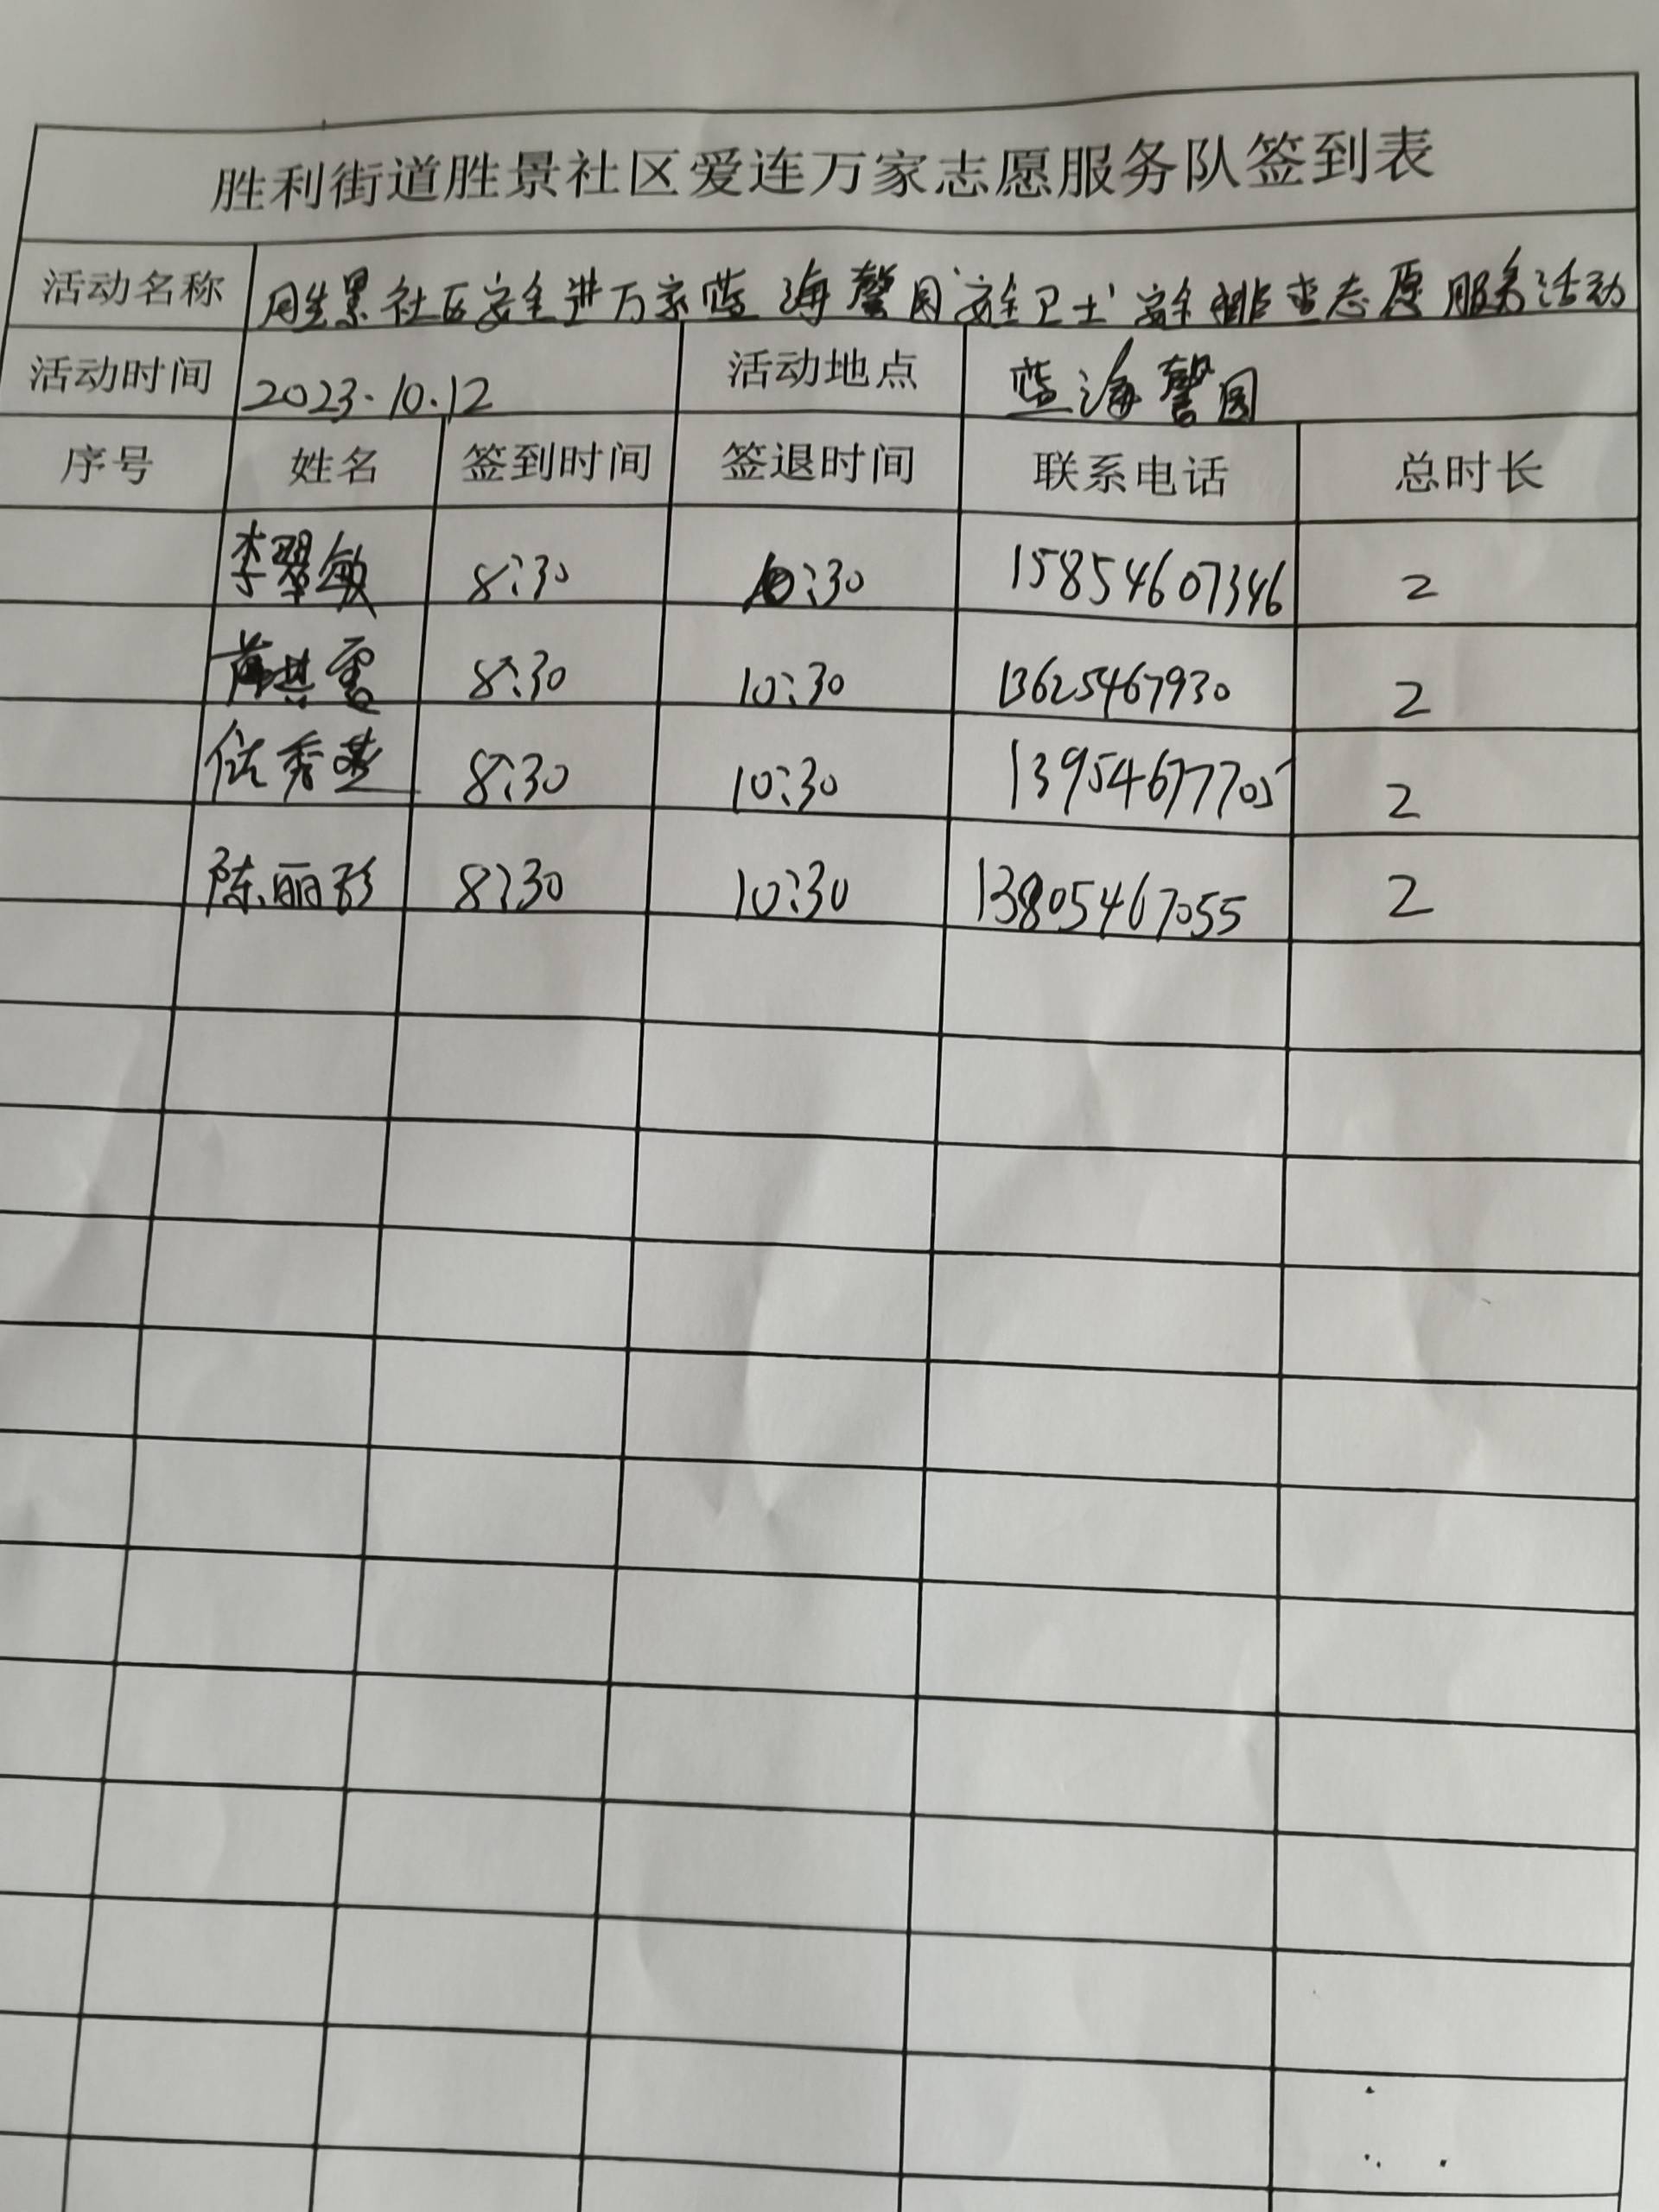 胜利街道胜景社区爱连万家志愿服务队签到表
活动名称 胜景社区安全进万家蓝海馨园"安全卫士"安全排查志愿服务活动
活动时间 2023.10.12 活动地点 蓝海馨园
序号 姓名 签到时间 签退时间 联系电话 总时长
李翠敏 8:30 10:30 15854607346 2
8:30 10:30 13625467930 2
8:30 10:30 13954677705 2
陈丽珍 8:30 10:30 13805467055 2